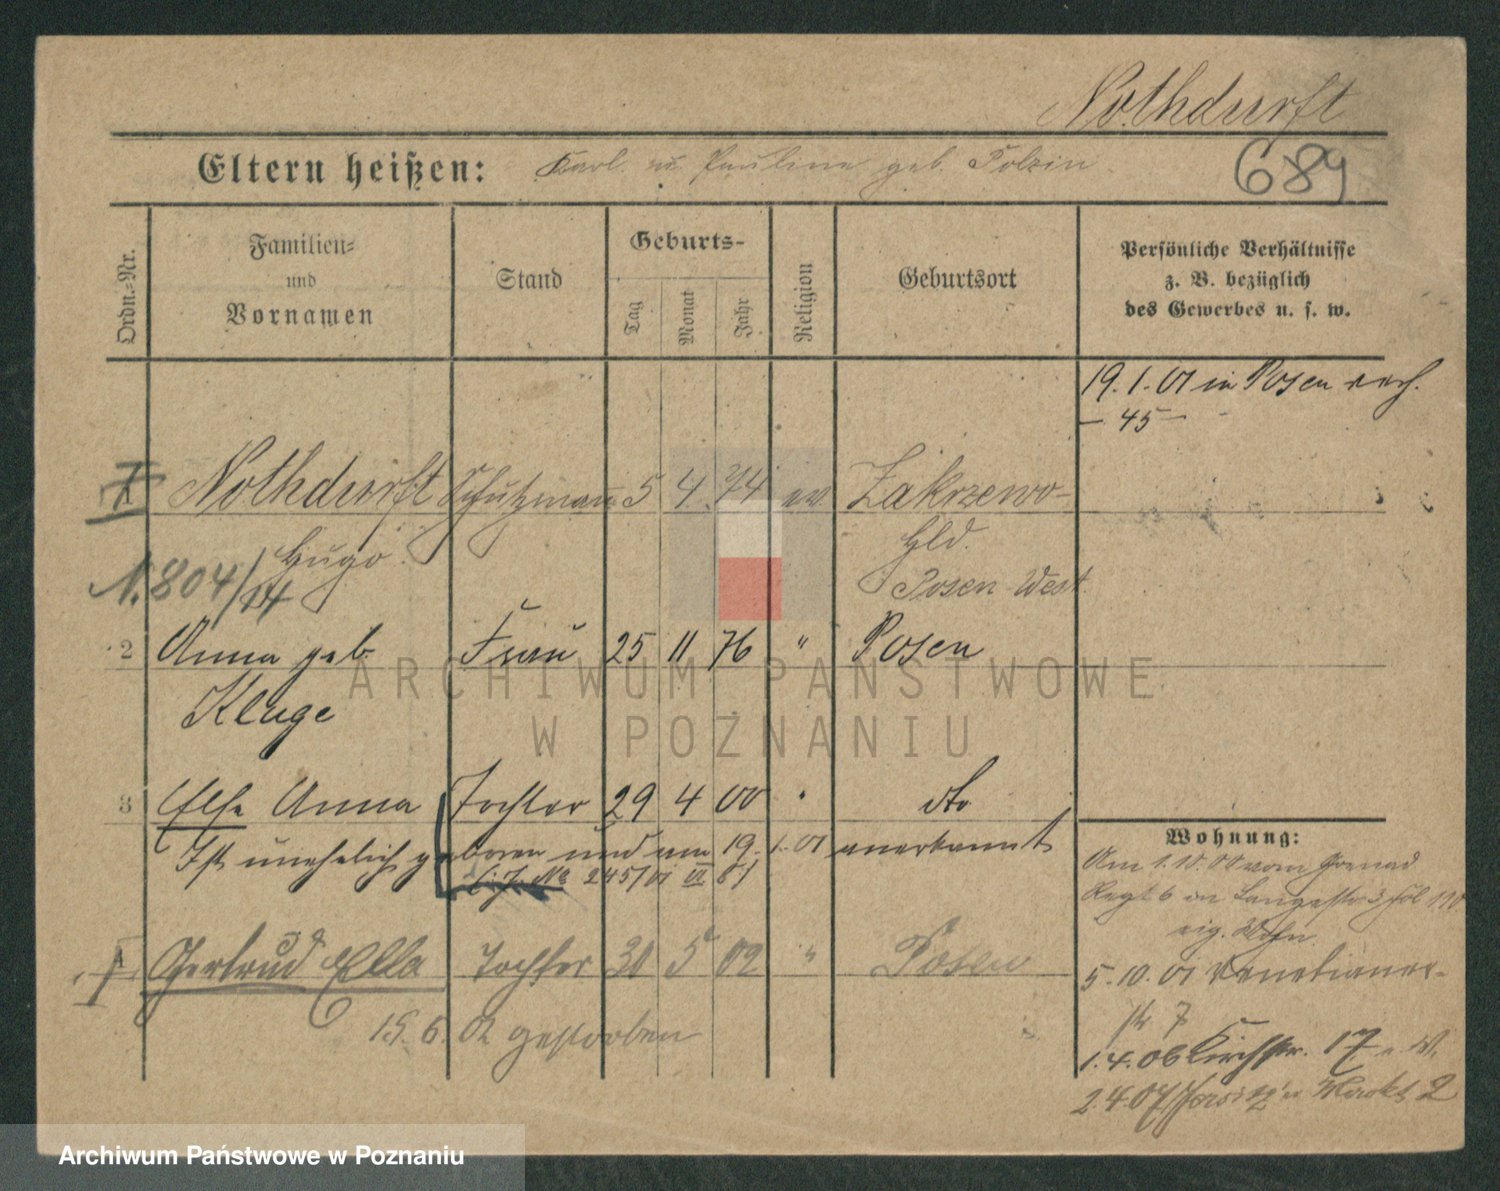 Nothdurft
Eltern heißen: Karl u. Pauline geb. Polzin
689
Ordn.-Nr.
Familien-
und
Vornamen
Stand
Geburts-
Tag
Monat
Jahr
Religion
Geburtsort
Persönliche Verhältnisse
z. B. bezüglich
des Gewerbes u. s. w.
19. 1. 01 in Posen
- 45 -
1 Nothdurft Schutzmann 5 4. 74 ev. Zakrzewo-
Hugo Hld.
Posen West
1.804/14
2 Anna geb. Frau 25 11 76 " Posen
Kluge
3 Else Anna Tochter 29 4 00 " dto
Ist unehelich geboren und am 19. 1. 01 anerkannt
No 245/01 III 01
Gertrud Ella Tochter 30 5 02 " Posen
15. 6. 02 gestorben
Wohnung:
Am 1. 10. 00 vom Grenad
Regt 6 in Langestr. 3 190
eig. Wohn.
5. 10. 01 Venetianer-
str 7
1. 4. 06 Kirchstr. 17
2. 4. 07 Jersitz'r Markt 2
ARCHIWUM PAŃSTWOWE
W POZNANIU
Archiwum Państwowe w Poznaniu